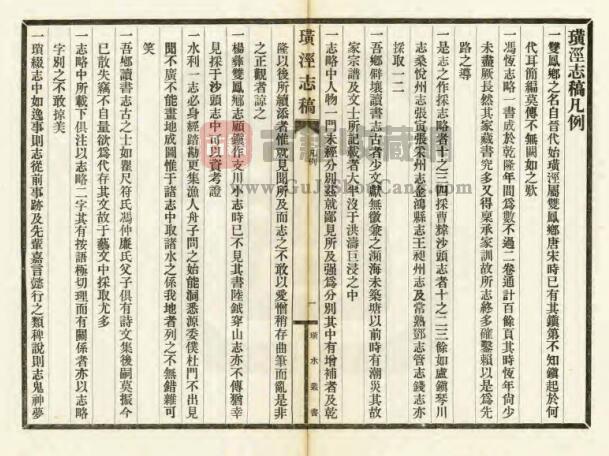 璜涇志稿凡例
一雙鳳鄉之名自晉代始璜涇屬雙鳳鄉唐宋時已有其鎮第不知鎮起於何
代耳簡編莫傳不無闕如之歎
一馮恆志略一書成於乾隆年間爲數不過二卷通計百餘頁其時恆年尙少
未盡厥長然其家藏書究多又得稟承家訓故所志終多確鑿賴以是爲先
路之導
一是志之作採志略者十之三四採曹煒沙頭志者十之二三餘如盧鎮琴川
志桑悅州志張寅張采州志金鴻縣志王昶州志及常熟鄧志管志錢志亦
採取一二
一吾鄉僻壤讀書志古者少文獻無徵兼之瀕海未築塘以前時有潮災其故
家宗譜及文士所記載者大半沒于洪濤巨浸之中
一志略中人物一門未經分別茲就鄙見所及强爲分別其中有增補者及乾
璜涇志稿
凡例
一
璜水叢書
隆以後所續添者惟就見聞所及而志之不敢以愛憎稍存曲筆而亂是非
之正觀者諒之
一楊彝雙鳳鄉志顧鑑作志川小志時已不見其書陸鉞穿山志亦不傳猶幸
見採于沙頭志中可以資考證
一水利一志必身經踏勘更集漁人舟子問之始能洞悉源委僕杜門不出見
聞不廣不能畫地成圖惟于諸志中取諸水之係我地者列之不無錯雜可
笑
一吾鄉讀書志古之士如瞿尺符氏馮仲廉氏父子俱有詩文集後嗣莫振今
已散失竊不自量欲爲代存其文故于藝文中採取尤多
一志略中所載下俱注以志略二字其有按語極切理而有關係者亦以志略
字別之不敢掠美
一瑣綴志中如逸事則志從前事跡及先輩嘉言懿行之類稗說則志鬼神夢